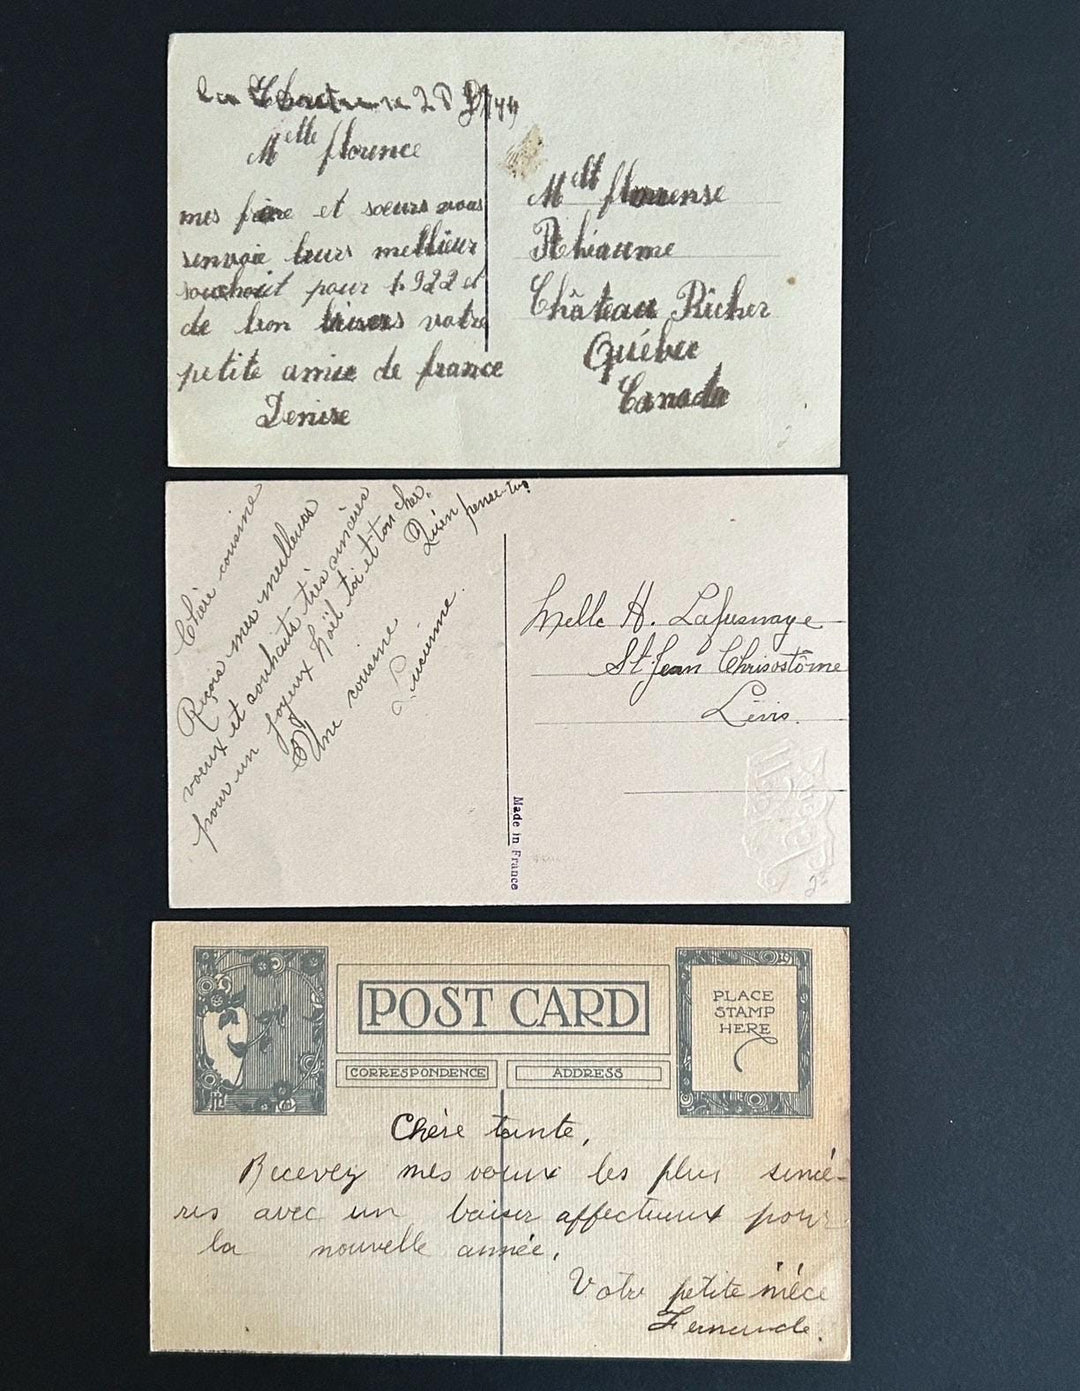 Melle florence
mes frère et soeurs vous
renvoie leurs mellieur
souhait pour 1922 et
de bon baisers votre
petite amie de france
Denise
Melle florense
Rhéaume
Château Richer
Québec
Canada
Chère cousine
Reçois mes meilleurs
voeux et souhaits très sincères
pour un joyeux Noël toi et ton cher.
Qu'en pense-tu?
Une cousine
Lucienne.
Melle H.
St Jean Chrisostôme
Lévis.
Made in France
POST CARD
CORRESPONDENCE
ADDRESS
PLACE
STAMP
HERE
Chère tante,
Recevez mes voeux les plus sincè-
res avec un baiser affectueux pour
la nouvelle année.
Votre petite nièce
Fernande.